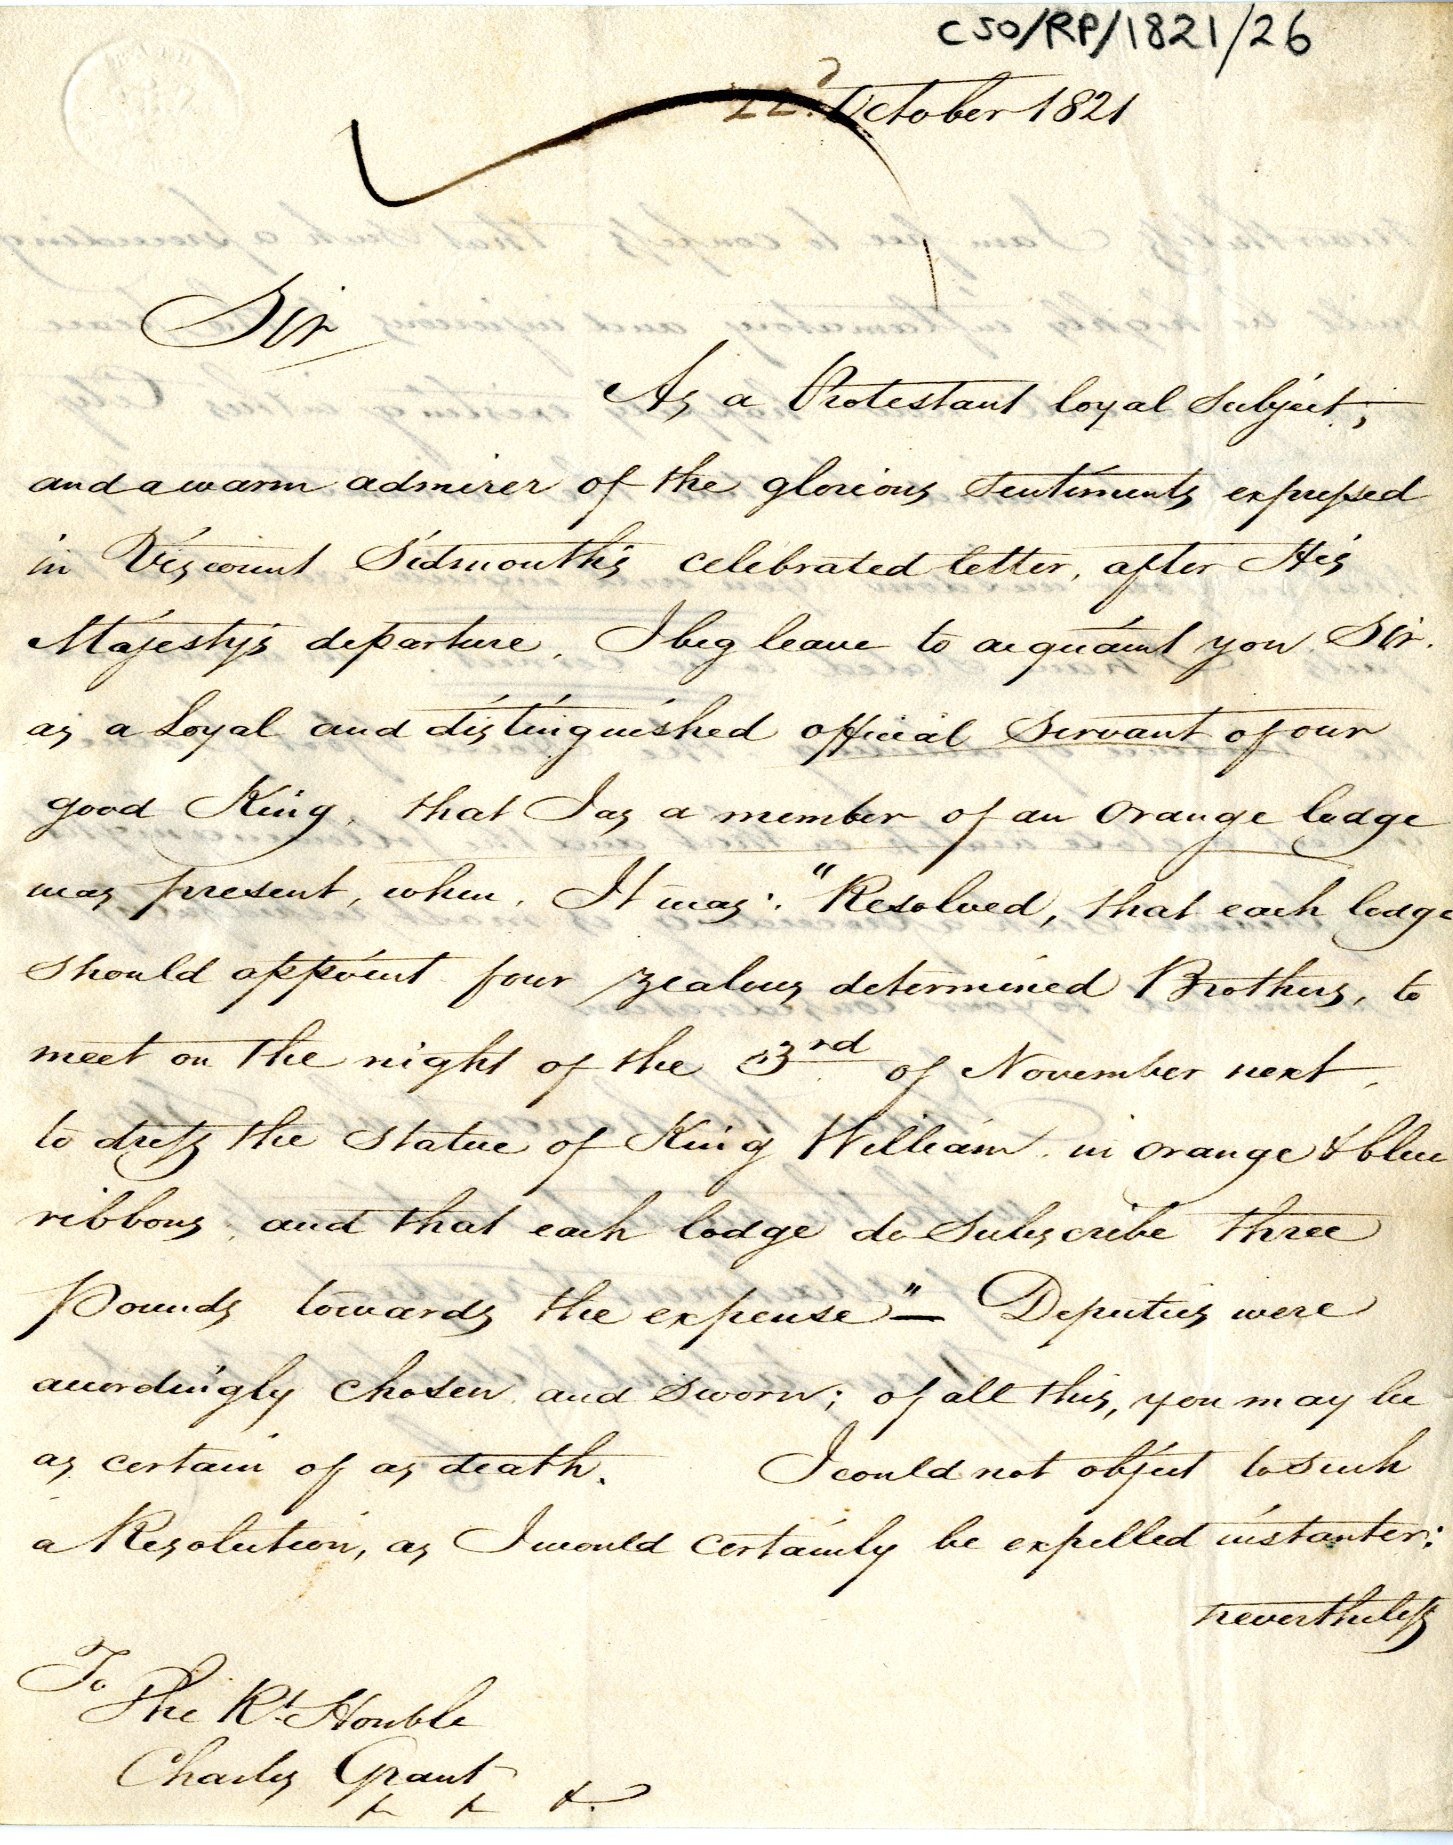 CSO/RP/1821/26
22d October 1821
Sir
As a Protestant loyal Subject,
and a warm admirer of the glorious Sentiments expressed
in Viscount Sidmouth's celebrated letter, after His
Majesty's departure, I beg leave to acquaint you Sir.
as a Loyal and distinguished official Servant of our
good King, that I as a member of an Orange lodge
was present, when, It was: "Resolved, that each lodge
should appoint four zealous determined Brothers, to
meet on the night of the 3rd of November next,
to dress the Statue of King William in orange & blue
ribbons, and that each lodge do Subscribe three
Pounds towards the expense" — Deputies were
accordingly chosen and sworn; of all this, you may be
as certain of as death. I could not object to such
a Resolution, as I would certainly be expelled instanter;
nevertheless
To
The Rt. Honble
Charles Grant